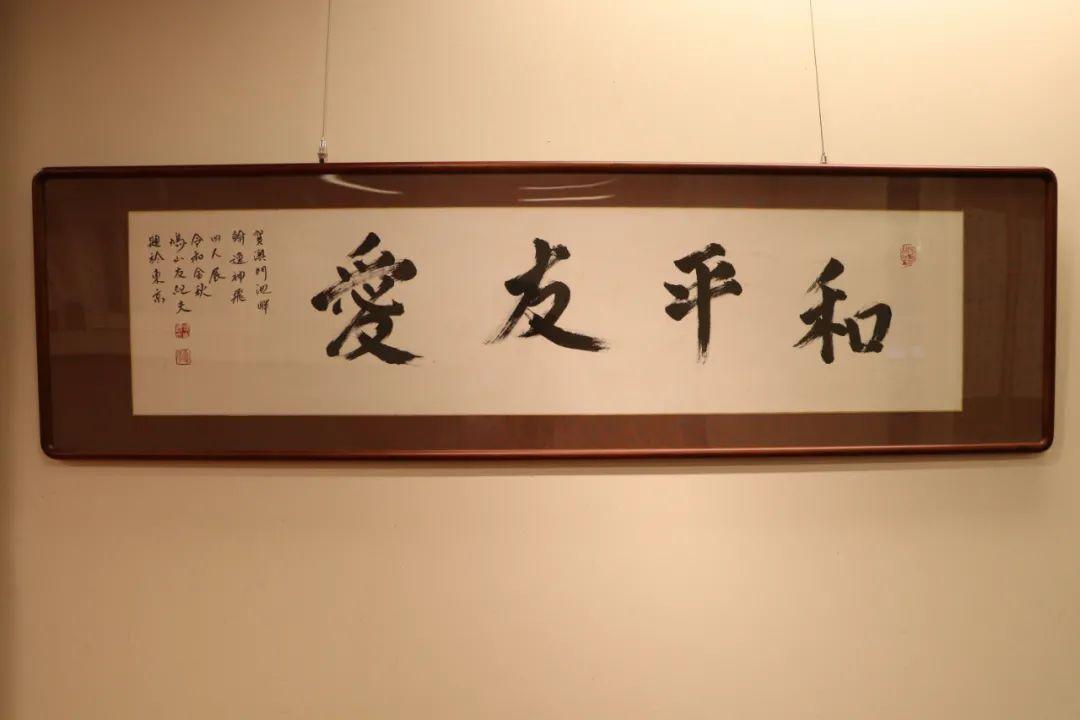 和平友愛
賀澳門池畔
翰逸神飛
四人展
令和金秋
鳩山友紀夫
題於東京